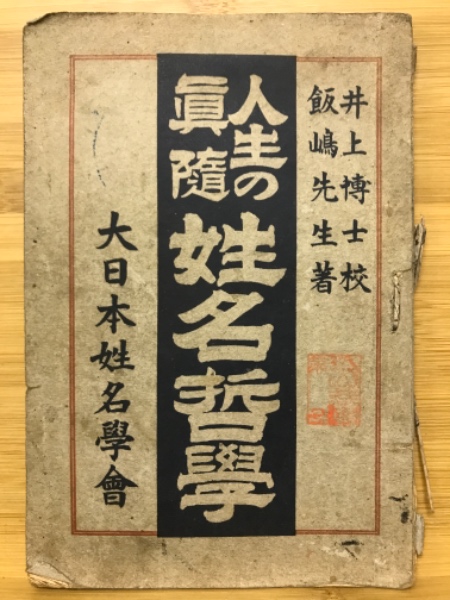 井上博士校
飯嶋先生著
人生の
眞隨
姓名哲學
大日本姓名學會